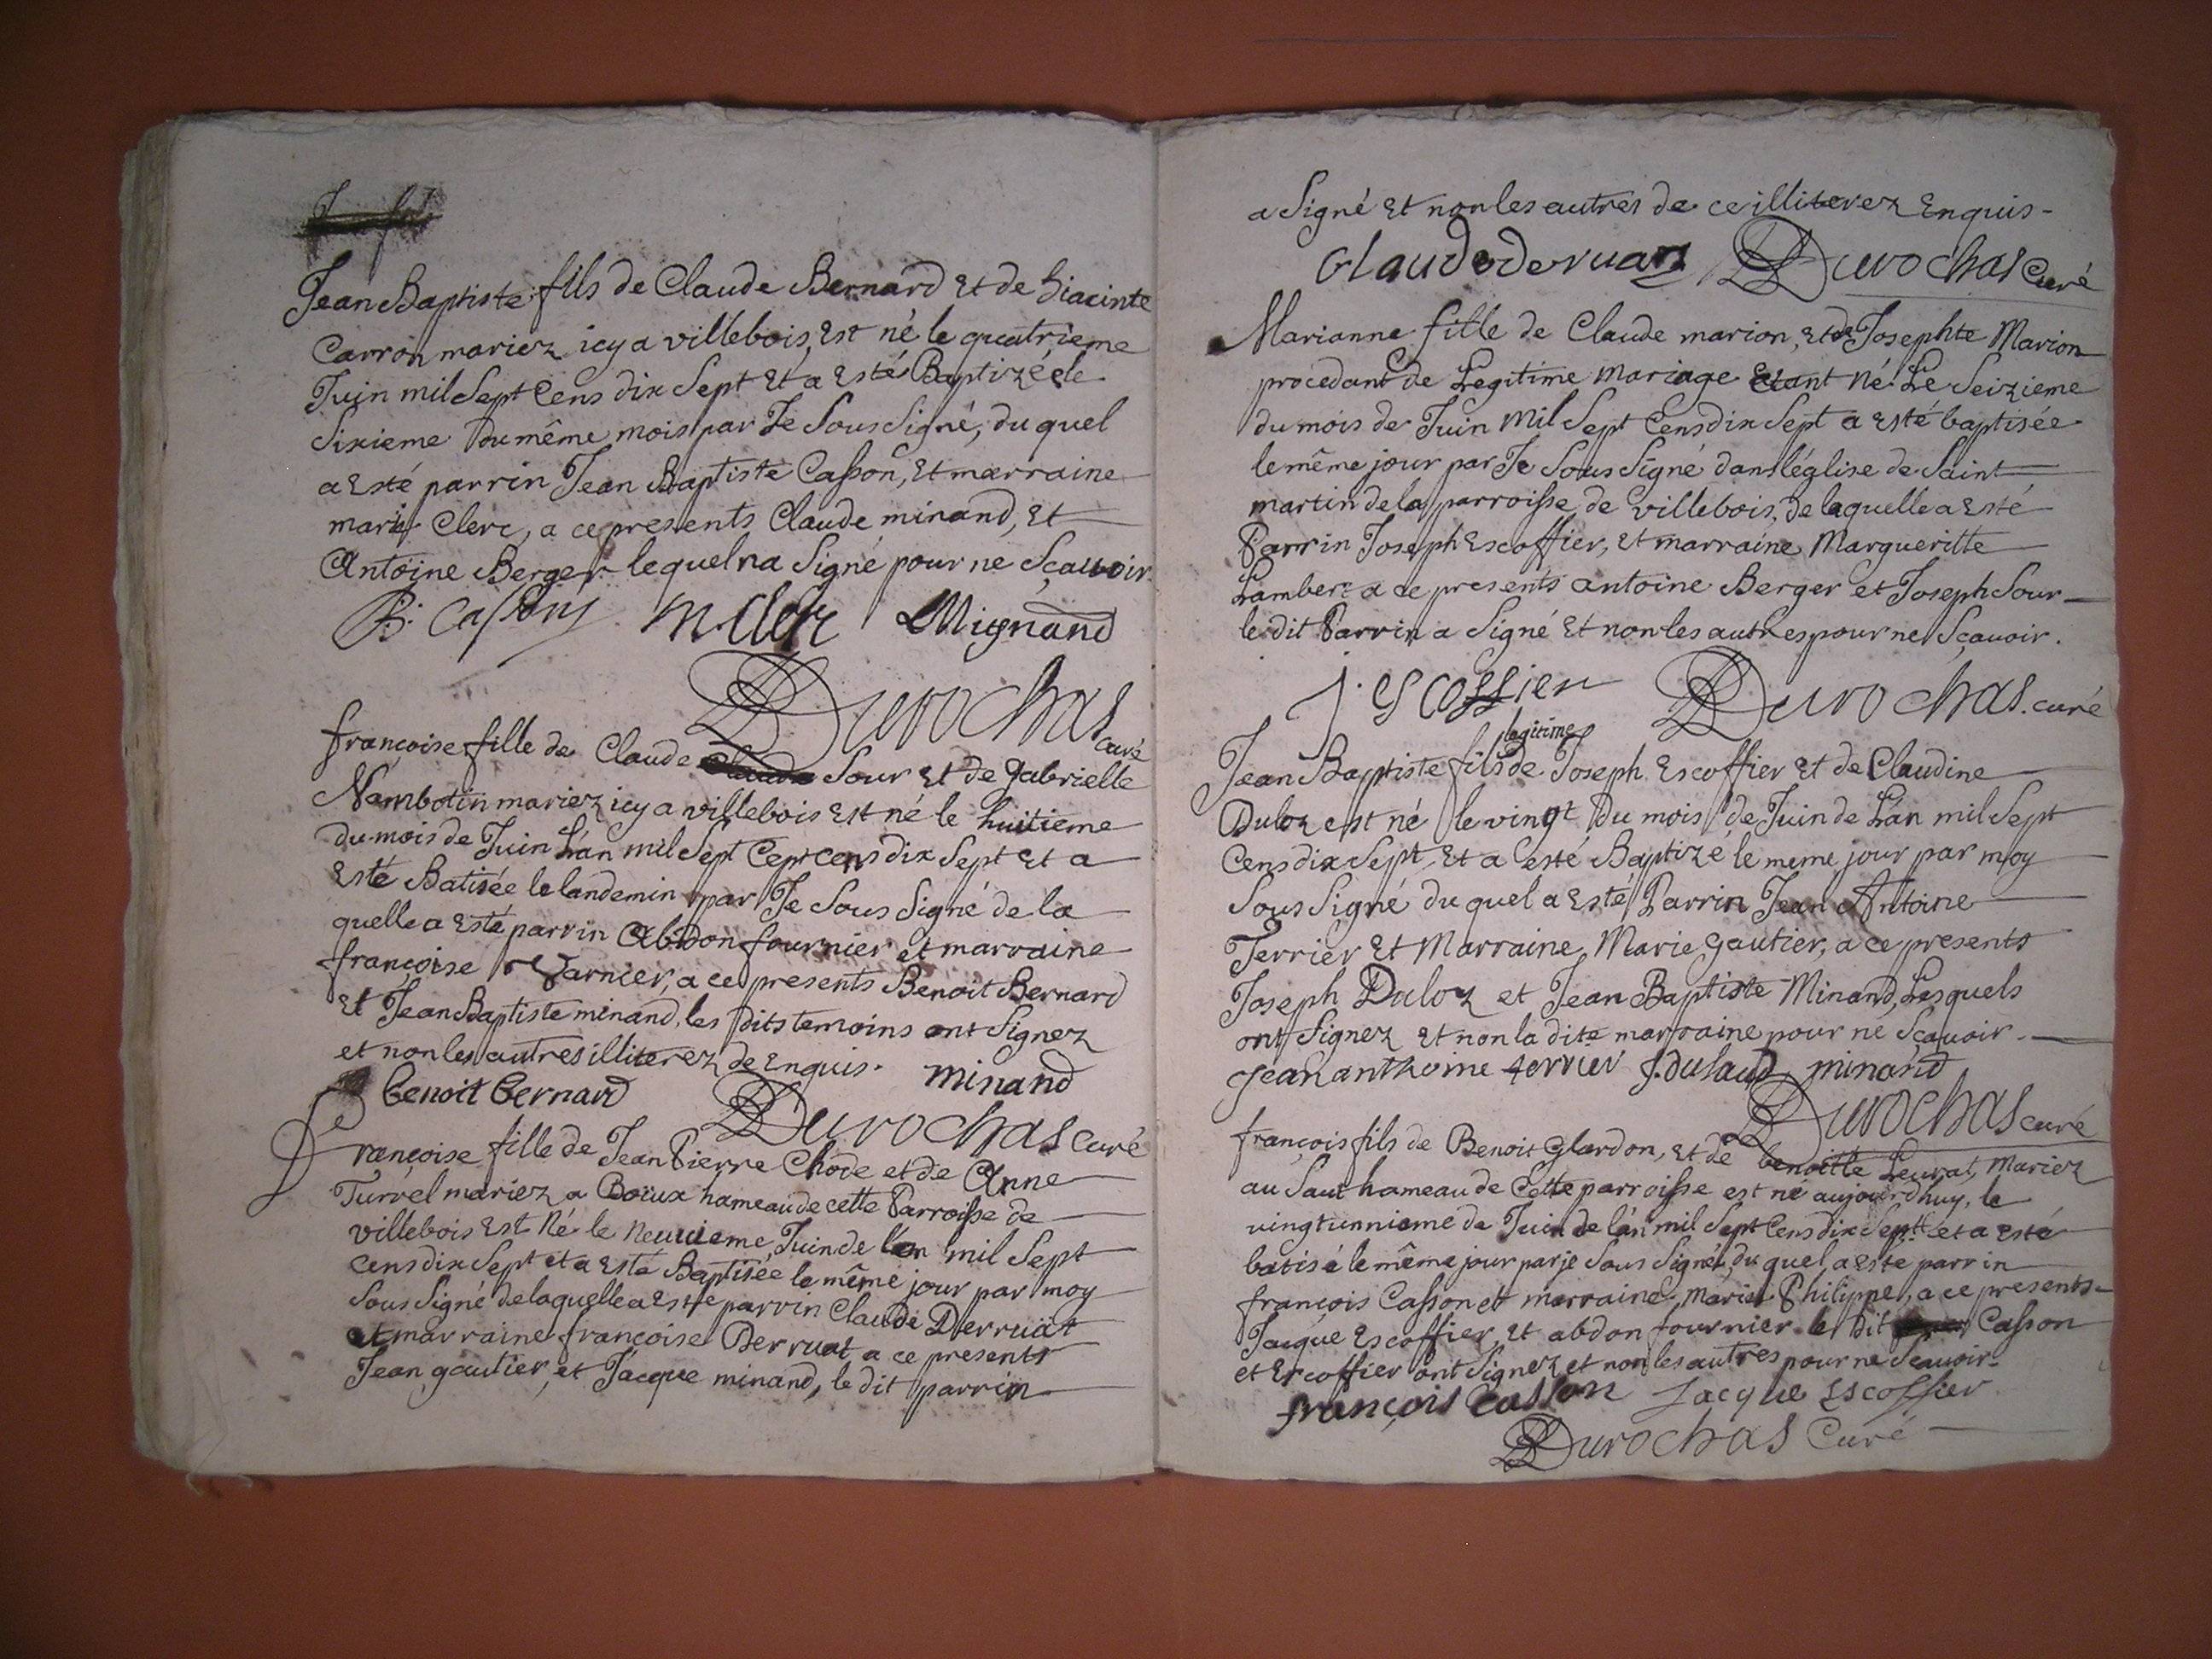 Jean Baptiste fils de Claude Bernard Et de hiacinte
Carron mariez icy a villebois, Est né le quatrieme
Juin mil Sept Cens dix Sept Et a Esté Baptizé le
Sixieme du même mois par Je Sous Signé, du quel
a Esté parrin Jean Baptiste Casson, Et marraine
marie Clerc, a ce presents Claude minand, Et
Antoine Berger lequel na Signé pour ne Sçauoir.
B. Casson M. Clerc Mignand
DuroChas curé
françoise fille de Claude Sour Et de gabrielle
Nambotin mariez icy a villebois Est né le huitieme
du mois de Juin L'an mil Sept Cept cens dix Sept Et a
Esté Batisée le landemin par Je Sous Signé de la
quelle a Esté parrin Abdon fournier et marraine
françoise Varnier, a ce presents Benoit Bernard
Et Jean Baptiste minand, les dits temoins ont Signez
et non les autres illiterez de Enquis. minand
benoit bernard
DuroChas Curé
françoise fille de Jean Pierre Chode et de Anne
Turrel mariez a Boüux hameau de cette Parroisse de
villebois Est Né le Neuuieme Juin de l'an mil Sept
Cens dix Sept et a Esté Baptisée le même jour par moy
Sous Signé de laquelle a Esté parrin Claude Derruät
et marraine françoise Derruat a ce presents
Jean gautier, et Jacque minand, le dit parrin
a Signé Et non les autres de ce illiterez Enquis -
Claude deruaz DuroChas Curé
Marianne fille de Claude marion, et de Josephte Marion
procedant de Legitime mariage Etant Né Le Seizieme
du mois de Juin Mil Sept Cens dix Sept a Esté baptisée
le même jour par Je Sous Signé dans l'église de Saint
martin de la parroisse de villebois, de laquelle a Esté
Parrin Joseph Escoffier, Et marraine Margueritte
Lambert a ce presents antoine Berger et Joseph Sour
le dit Parrin a Signé Et non les autres pour ne Sçauoir.
j. escoffier DuroChas. curé
legitime
Jean Baptiste fils de Joseph Escoffier Et de Claudine
Duloz est né le vingt du mois de Juin de L'an mil Sept
Cens dix Sept, Et a esté Baptizé le meme jour par moy
Sous Signé du quel a Esté Parrin Jean Antoine
Terrier Et Marraine Marie gautier, a ce presents
Joseph Duloz et Jean Baptiste Minand, Lesquels
ont Signez Et non la dite marraine pour ne Sçauoir.
jean anthoine terrier J. dulaud minand
DuroChas curé
françois fils de Benoit glardon, Et de benoitte Leurat, Mariez
au Saut hameau de Cette parroisse est né aujourdhuy, le
vingtunnieme de Juin de l'an mil Sept Cens dix Sept et a esté
batisé le même jour par je Sous Signé, du quel a esté parrin
françois Casson et marraine marie Philippe, a ce presents
Jacque Escoffier, Et abdon fournier le dit Casson
et Escoffier ont Signez et non les autres pour ne Scauoir.
françois Casson Jacque Escoffier
DuroChas Curé